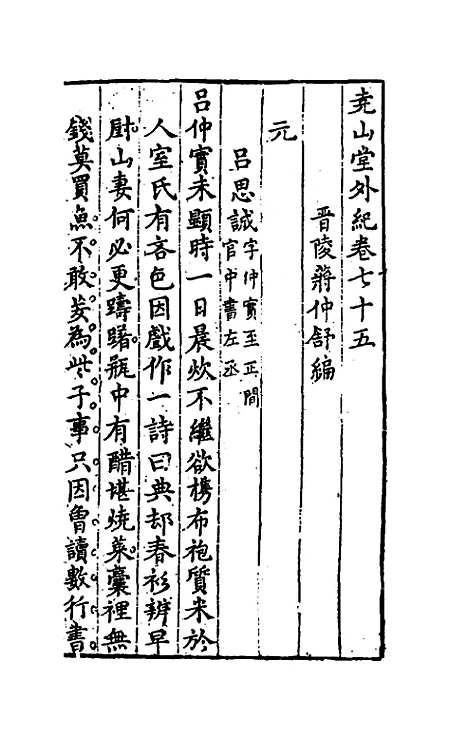 堯山堂外紀卷七十五
晋陵蔣仲舒編
元
呂思誠字仲實至正間官中書左丞
呂仲實未顯時一日晨炊不繼欲携布袍質米於
人室氏有吝色因戲作一詩曰典却春衫辨早
厨山妻何必更躊躇瓶中有醋堪燒菜囊裡無
錢莫買魚不敢妄為些子事只因曾讀數行書